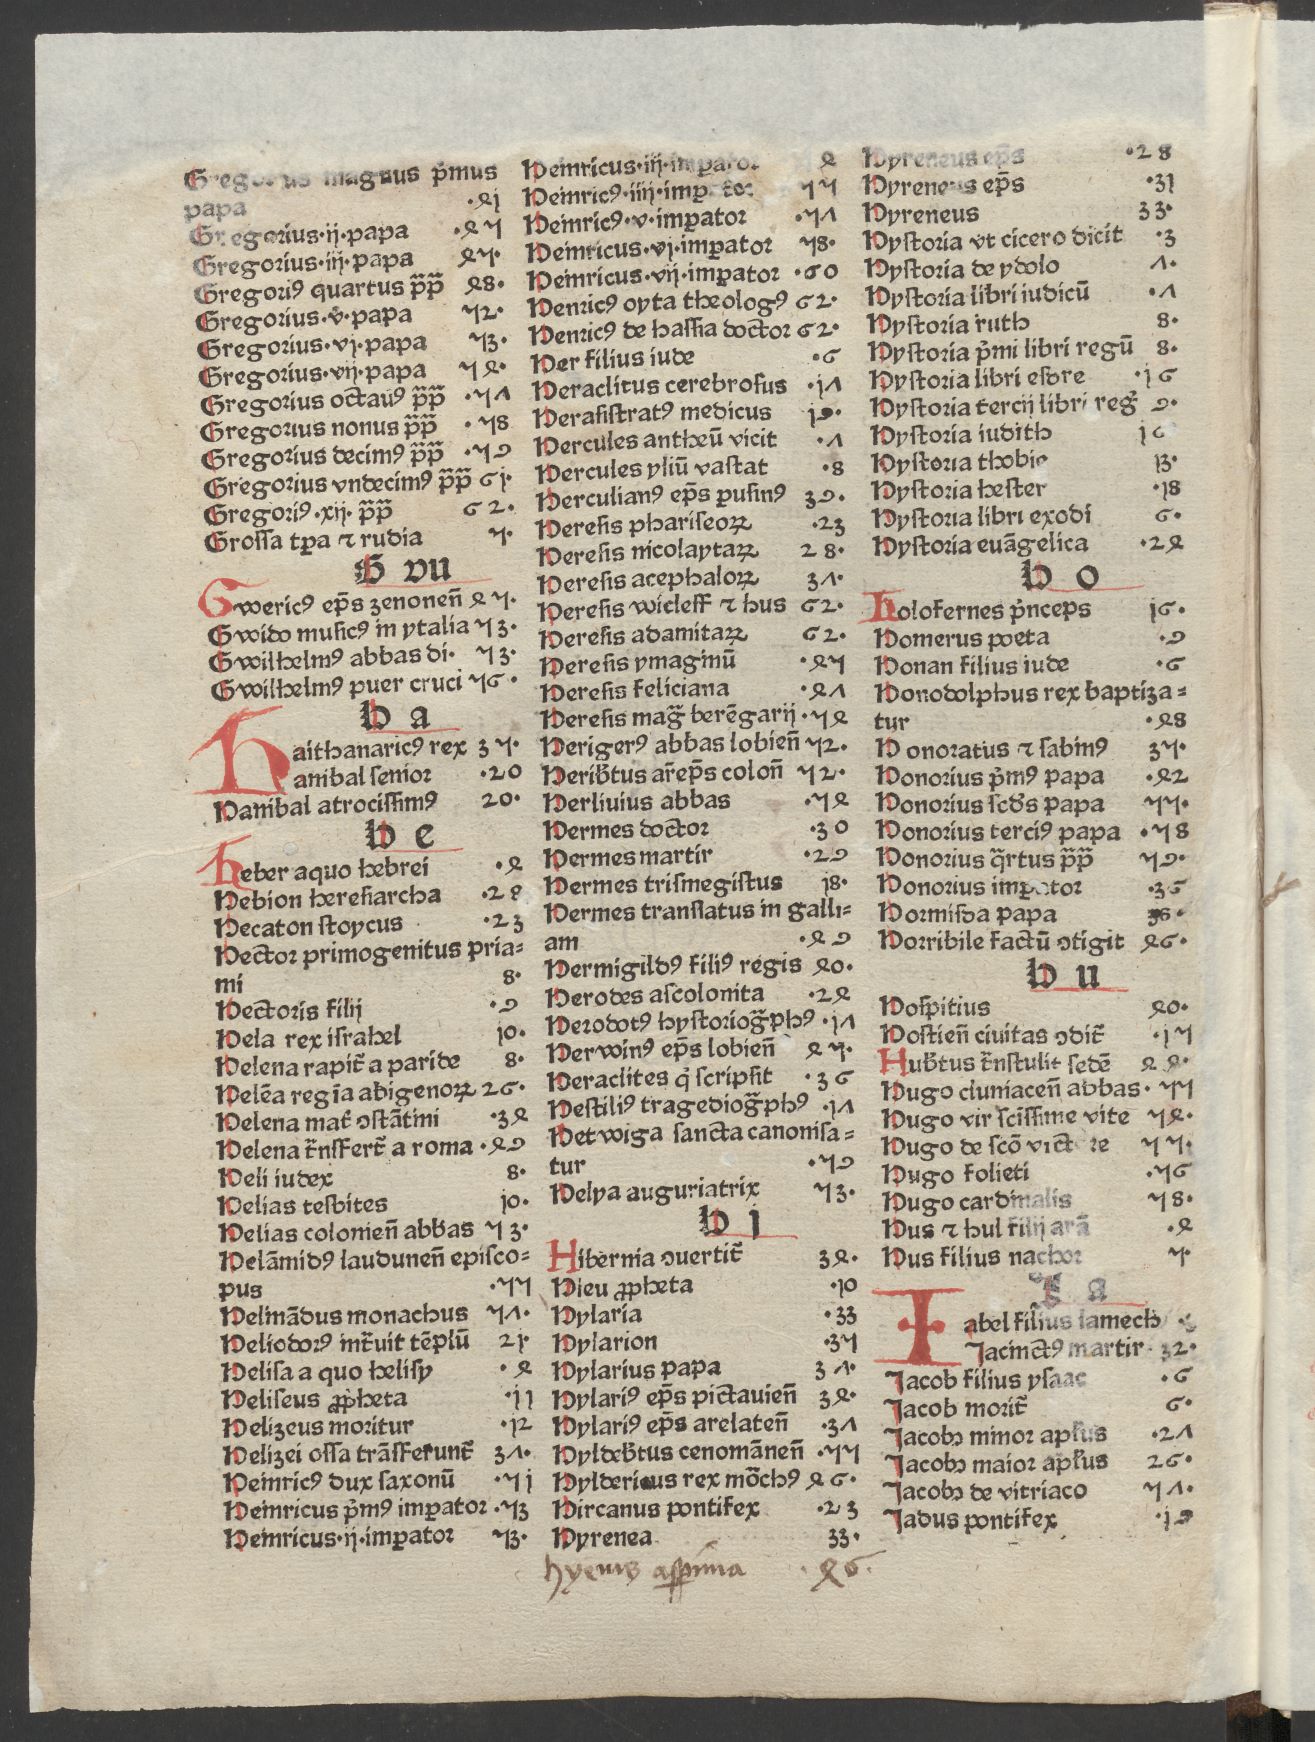 Gregorius magnus p̄mus
papa ·4j
Gregorius·ij·papa ·45
Gregorius·iij·papa 45·
Gregoriꝰ quartus p̄p̄ 48·
Gregorius·v̄·papa 52·
Gregorius·vj·papa 53·
Gregorius·vij·papa 54·
Gregorius octauꝰ p̄p̄ ·57
Gregorius nonus p̄p̄ ·58
Gregorius decimꝰ p̄p̄ ·59
Gregorius vndecimꝰ p̄p̄ 6j·
Gregoriꝰ·xij· p̄p̄ 62·
Grossa tꝑa ⁊ rudia 5·
G vu
Gwericꝰ ep̄s zenonen̄ 45·
Gwido musicꝰ in ytalia 53·
Gwilhelmꝰ abbas di· 53·
Gwilhelmꝰ puer cruci 56·
H a
Haithanaricꝰ rex 35·
Hanibal senior ·20
Hanibal atrocissimꝰ 20·
H e
Heber a quo hebrei ·4
Hebion heresiarcha ·28
Hecaton stoycus ·23
Hector primogenitus pria=
mi 8·
Hectoris filij ·9
Hela rex israhel j0·
Helena rapit̄ a paride 8·
Helēa regīa abigenoꝝ 26·
Helena mat̄ ↄstātini ·34
Helena t̄nsfert̄ a roma ·49
Heli iudex 8·
Helias tesbites j0·
Helias colonien̄ abbas 53·
Helāmidꝰ laudunen̄ episco=
pus ·55
Helināndus monachus 57·
Heliodorꝰ int̄uit tēplū 2j·
Helisa a quo helisy ·4
Heliseus ꝓpheta ·jj
Helizeus moritur ·j2
Helizei ossa trāsferunt̄ 37·
Heinricꝰ dux saxonū ·5j
Heinricus p̄mꝰ imꝑator ·53
Heinricus·ij·imꝑator 53·
Heinricus·iij·imꝑator 4
Heinricꝰ·iiij·imꝑator 55
Heinricꝰ·v·imꝑator ·57
Heinricus·vj·imꝑator 58·
Heinricus·vij·imꝑator ·60
Henricꝰ oyta theologꝰ 62·
Henricꝰ de hassia doctor 62·
Her filius iude ·6
Heraclitus cerebrosus ·j7
Herasistratꝰ medicus j9·
Hercules antheū vicit ·7
Hercules yliū vastat ·8
Herculianꝰ ep̄s ꝑusinꝰ 39·
Heresis phariseoꝝ ·23
Heresis nicolaytaꝝ 28·
Heresis acephaloꝝ 37·
Heresis wicleff ⁊ hus 62·
Heresis adamitaꝝ 62·
Heresis ymaginū ·45
Heresis feliciana ·47
Heresis maḡ berēgarij ·54
Herigerꝰ abbas lobien̄ 52·
Herib̄tus ar̄ep̄s colon̄ 52·
Herliuius abbas ·54
Hermes doctor ·30
Hermes martir ·29
Hermes trismegistus j8·
Hermes translatus in galli=
am ·49
Hermigildꝰ filiꝰ regis 40·
Herodes ascolonita ·24
Herodotꝰ hystorioḡphꝰ ·j7
Herwinꝰ ep̄s lobien̄ 45·
Heraclites q̇ scripsit ·36
Hestiliꝰ tragedioḡphꝰ ·j7
Hetwiga sancta canonisa=
tur ·59
Helya auguriatrix 53·
H j
Hibernia ↄuertit̄ 34·
Hieu ꝓpheta ·10
Hylaria ·33
Hylarion ·35
Hylarius papa 37·
Hylariꝰ ep̄s pictauien̄ 34·
Hylariꝰ ep̄s arelaten̄ ·37
Hyldeb̄tus cenomānen̄ ·55
Hyldericus rex mōchꝰ 46·
Hircanus pontifex ·23
Hyrenea 33·
hyems asꝑrima ·46·
Hyreneus ep̄s ·28
Hyreneus ep̄s ·3j
Hyreneus 33·
Hystoria vt cicero dicit ·3
Hystoria de ydolo 7·
Hystoria libri iudicū ·7
Hystoria ruth 8·
Hystoria p̄mi libri regū 8·
Hystoria libri esdre ·j6
Hystoria tercij libri reḡ 9·
Hystoria iudith j6
Hystoria thobie j3·
Hystoria hester ·j8
Hystoria libri exodi 6·
Hystoria euāgelica ·24
H o
Holofernes p̄nceps j6·
Homerus poeta ·9
Honan filius iude ·6
Honodolphus rex baptiza=
tur ·48
Honoratus ⁊ sabinꝰ 35·
Honorius p̄mꝰ papa ·42
Honorius scd̄s papa 55·
Honorius terciꝰ papa ·58
Honorius q̄rtus p̄p̄ 59·
Honorius imꝑator ·36
Hormisda papa 38·
Horribile factū ↄtigit 46·
H u
Hospitius 40·
Hostien̄ ciuitas ↄdit̄ ·j5
Hub̄tus t̄nstulit sedē 44·
Hugo cluniacen̄ abbas· 55
Hugo vir sc̄issime vite 54·
Hugo de scō victore 55·
Hugo folieti ·56
Hugo cardinalis 58·
Hus ⁊ hul filij arā ·4
Hus filius nachor 5·
I a
Iabel filius lamech
Jacinctꝰ martir 32·
Jacob filius ysaac ·6
Jacob morit̄ 6·
Jacobꝰ minor apl̄us ·27
Jacobꝰ maior apl̄us 26·
Jacobꝰ de vitriaco 57·
Jadus pontifex ·j9